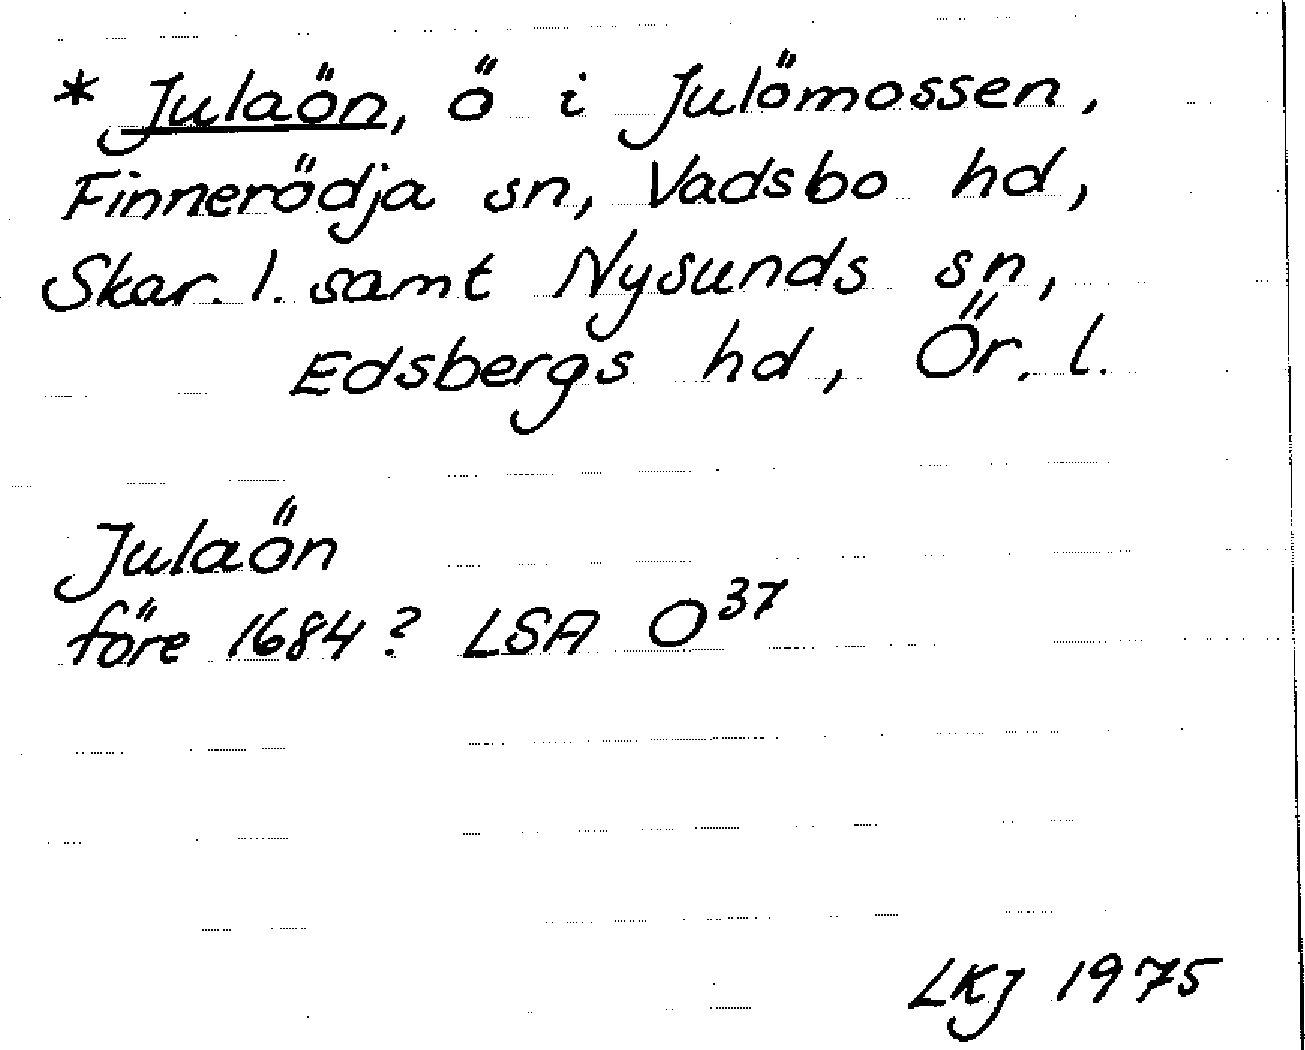 * Julaön, ö i Julömossen,
Finnerödja sn, Vadsbo hd,
Skar. l. samt Nysunds sn,
Edsbergs hd, Ör. l.
Julaön
före 1684? LSA O³⁷
LKJ 1975